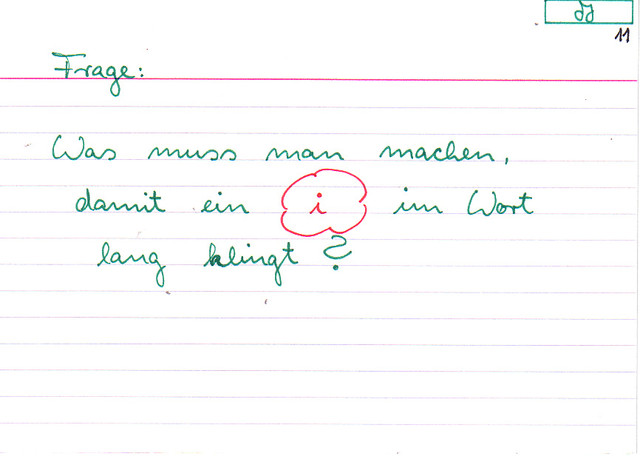 11
Frage:
Was muss man machen,
damit ein i im Wort
lang klingt?